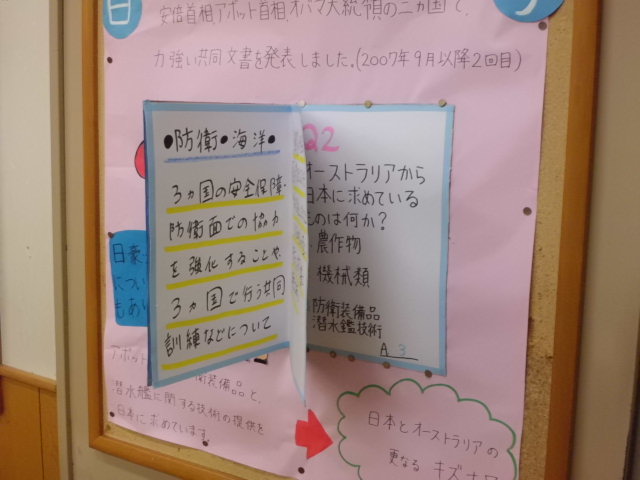 日
安倍首相アボット首相,オバマ大統領の三ヵ国で、
力強い共同文書を発表しました。(2007年9月以降2回目)
●防衛●海洋●
3ヵ国の安全保障・
防衛面での協力
を強化することや、
3ヵ国で行う共同
訓練などについて
Q2
オーストラリアから
日本に求めている
ものは何か?
農作物
機械類
防衛装備品
潜水鑑技術
A 3
日豪
につい
もあり
アボット
衛装備品と、
潜水艦に関する技術の提供を
日本に求めています。
日本とオーストラリアの
更なる キズナ